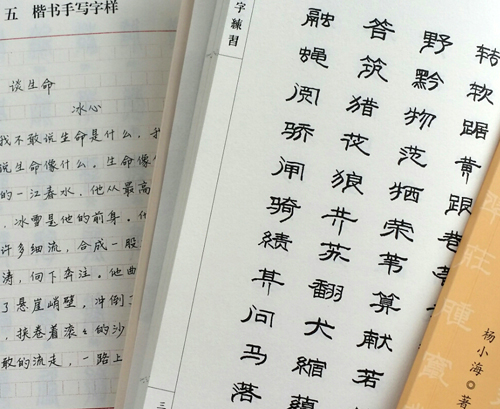 五 楷书手写字样
谈生命
冰心
我不敢说生命是什么，我
说生命像什么。生命像
的一江春水，他从最高
，冰雪是他的前身。他
许多细流，合成一股
涛，向下奔注。他曲
了悬崖峭壁，冲倒了
，挟卷着滚々的沙
敢的流走，一路上
字練習
转软踞黄跟巷
野黔物范牺荣苇算献若
答筑猎花狼共苏翻犬缩
融蝇阅骄闸骑绩其问马落
三
莊腫寶
杨小海 著